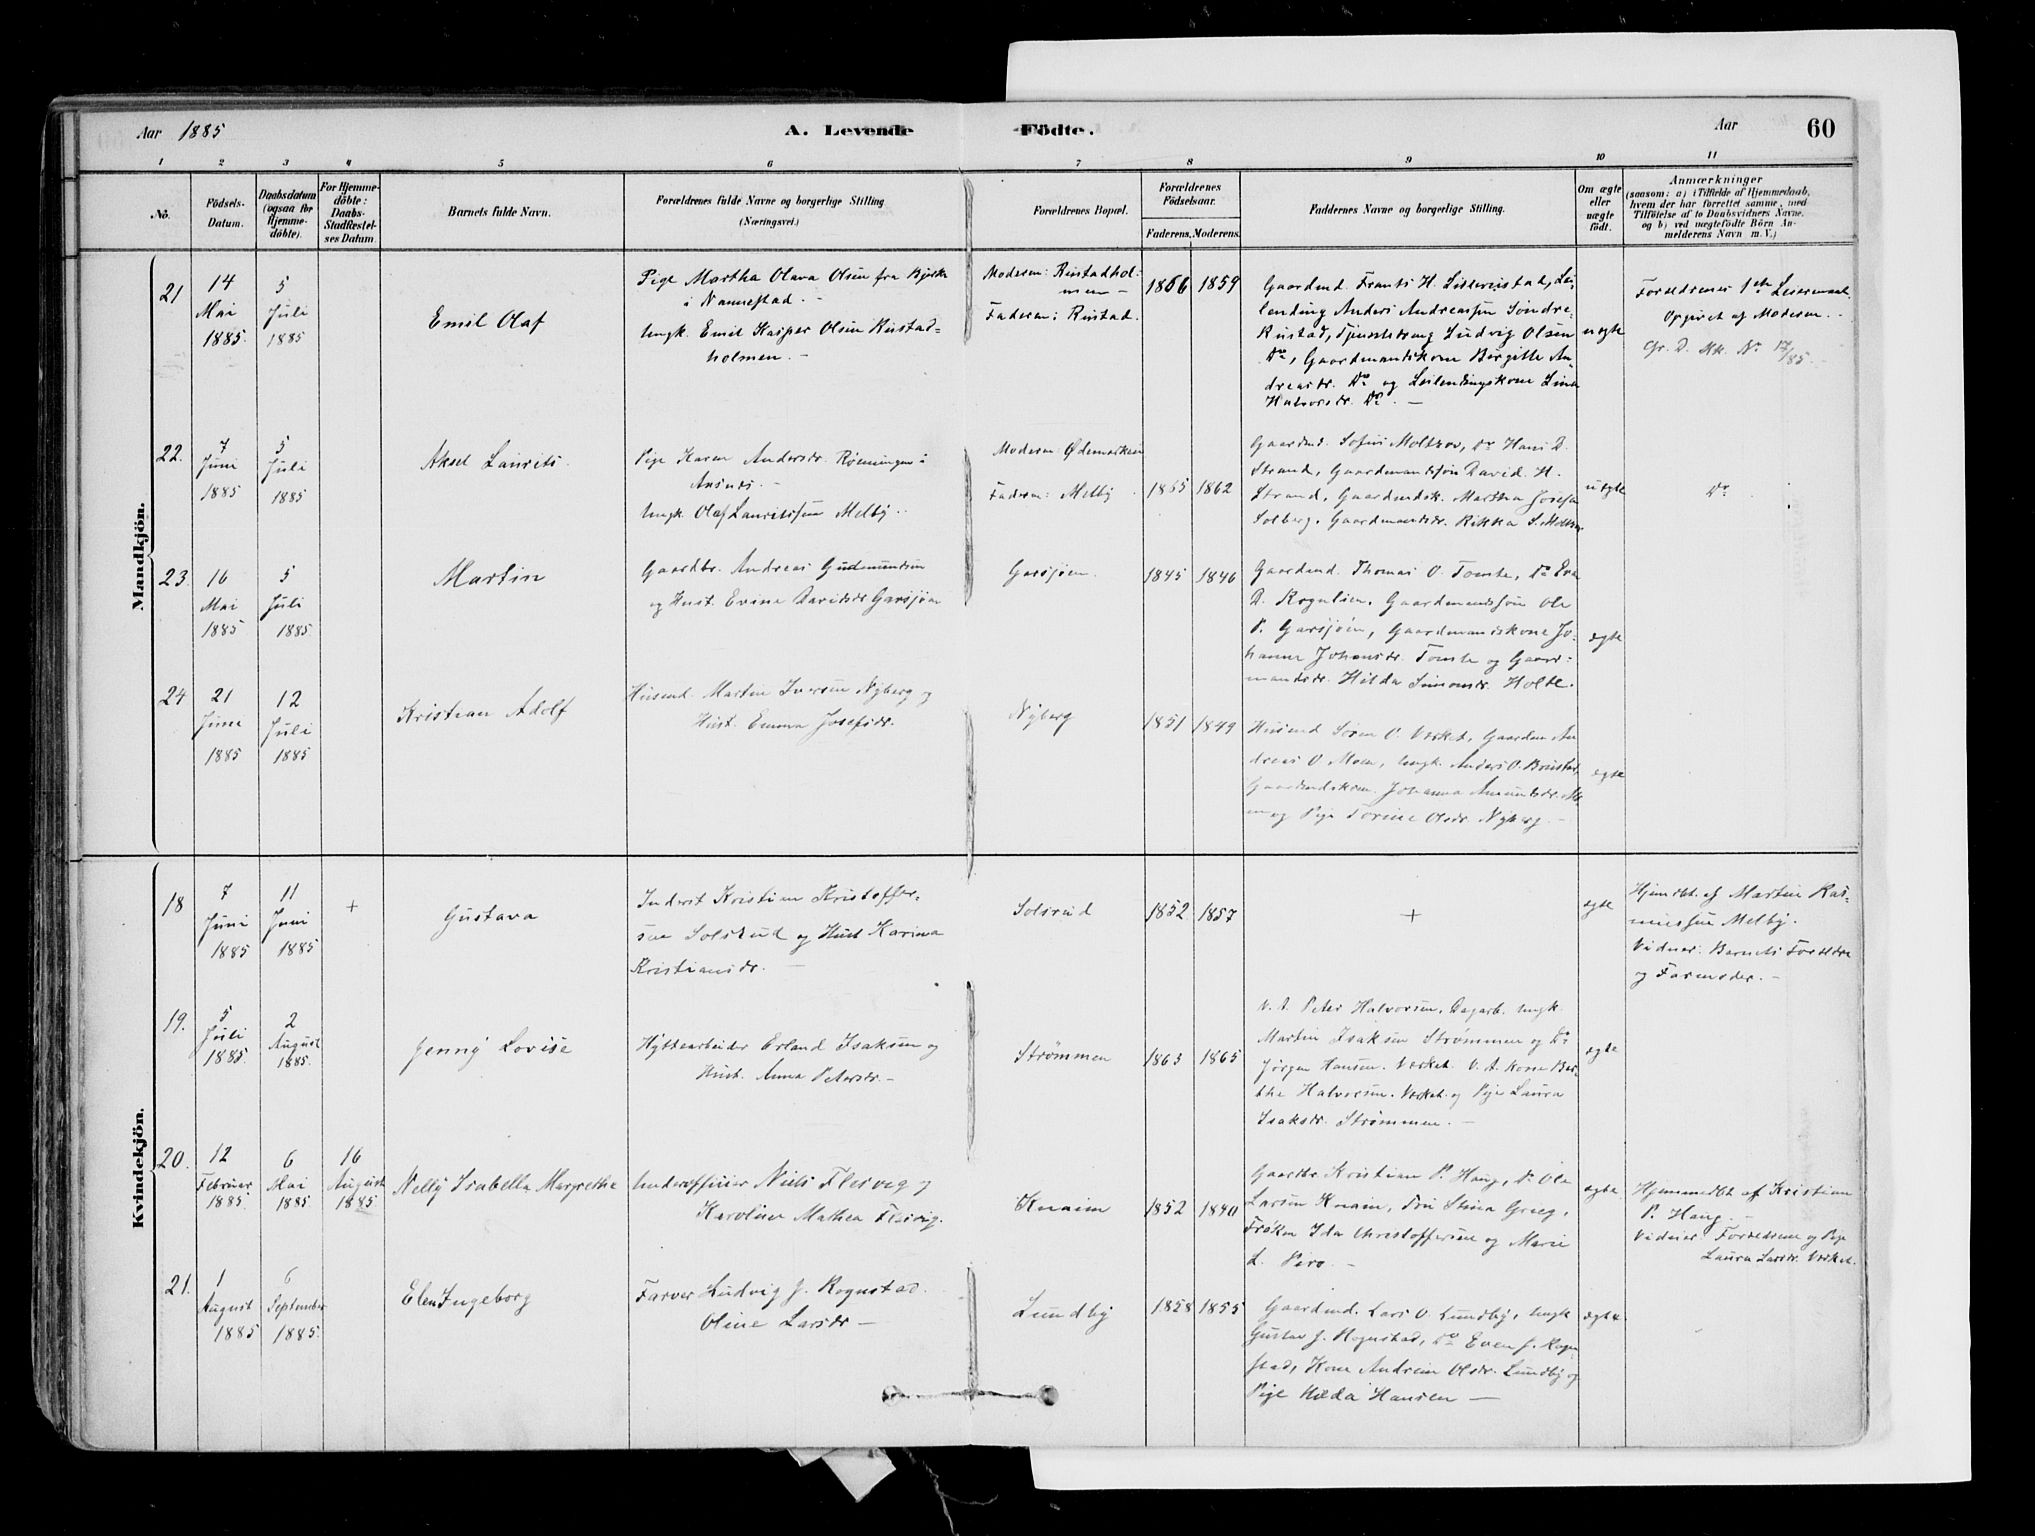 Aar 1885
A. Levende Födte.
Aar 60
1 2 3 4 5 6 7 8 9 10 11
No.
Födsels-
Datum.
Daabsdatum
(ogsaa for
Hjemme-
döbte).
For Hjemme-
döbte:
Daabs-
Stadfæstel-
ses Datum.
Barnets fulde Navn.
Forældrenes fulde Navne og borgerlige Stilling
(Næringsvei.)
Forældrenes Bopæl.
Forældrenes
Födselsaar.
Faderens. Moderens.
Faddernes Navne og borgerlige Stilling.
Om ægte
eller
uægte
födt.
Anmærkninger
(saasom: a) i Tilfælde af Hjemmedaab,
hvem der har forrettet samme, med
Tilföielse af to Daabsvidners Navne,
og b) ved uægtefödte Börn An-
melderens Navn m. V.)
Mandkjön.
21
14
Mai
1885
5
Juli
1885
Emil Olaf
Pige Martha Olava Olsen fra Bjerke
i Nannestad. -
Ungk. Emil Kasper Olsen Rustad-
holmen. -
Moderen: Rustadhol-
men -
Faderen: Rustad.
1866 1859
Gaardmd. Frants H. Lisserustad, Lei-
lending Anders Andreassen Søndre-
Rustad, Tjenestedreng Ludvig Olsen
Do, Gaardmandskone Birgitte An-
dreasdr. Do og Leilendingskone Lina
Halvorsdr. Do. -
uægte
Forældrenes 1ste Leiermaal.
Opgivet af Moderen. -
No 17/85.
22.
7
Juni
1885
5
Juli
1885
Aksel Laurits.
Pige Karen Andersdr. Rømningen i
Aasnes. -
Ungk. Olaf Lauritssen Melby.
Moderen: Ødemarken
Faderen: Melby.
1865 1862
Gaardmd. Sofus Moltzau, Do Hans D.
Strand, Gaardmandssøn David H.
Strand, Gaardmdsk. Martha Josefsen
Solberg, Gaardmandsdr. Rikka S. Moltzau
uægte
Do
23.
16
Mai
1885
5
Juli
1885.
Martin
Gaardbr. Andreas Gudmundsen
og Hust. Evine Davidsdr. Garsjøen
Garsjøen.
1845 1846
Gaardmd. Thomas O. Tomte, Do Even
D. Rognlien, Gaardmandssøn Ole
P. Garsjøen, Gaardmandskone Jo-
hanne Johansdr. Tomte og Gaard-
mandsdr. Hilda Simonsdr. Holte.
ægte
24
21
Juni
1885
12
Juli
1885
Kristian Adolf
Husmd. Martin Iversen Nyberg og
Hust. Emma Josefsdr.
Nyberg
1851 1849
Husmd Søren O. Værket, Gaardm An-
dreas O. Moen, Ungk. Anders O.
Gaardmdskone Johanna Amundsdr. Mo-
en og Pige Torine Olsdr. Nyberg. -
ægte
Kvindekjön.
18
7
Juni
1885
11
Juni
1885
+
Gustava
Inderst Kristian Kristoffer-
sen Solsrud og Hust Karina
Kristiansdr. -
Solsrud
1852 1857
+
ægte
Hjemdbt. af Martin Ras-
mussen Melby.
Vidner: Barnets Forældre
og Farmoder. -
19.
5
Juli
1885
2
August
1885.
Jenny Lovise
Hyttearbeider Erland Isaksen og
Hust. Anna Petersdr. -
Strømmen
1863 1865
V. A. Peter Halvorsen, Dagarb. Ungk.
Martin Isaksen Strømmen og Do
Jørgen Hansen. Værket. V. A. Kone Ber-
the Halvorsen. Værket. og Pige Laura
Isaksdr. Strømmen. -
ægte
20.
12
Februar
1885
6
Mai
1885
16
August
1885
Nelly Isabella Margrethe
Underofficier Niels Flesvig og
Karoline Mathea Flesvig.
Knaim
1852 1840
Gaardbr Kristian P. Haug, Do Ole
Larsen Knaim, Fru Stina Greeg,
Frøken Ida Christoffersen og Marie
L. Piro. -
ægte
Hjemmedbt af Kristian
P. Haug. -
Vidner Forældrene og Pige
Laura Larsdr. Værket.
21.
1
August
1885
6
September
1885.
Elen Ingeborg
Farver Ludvig J. Rognstad.
Oline Larsdr -
Lundby
1858 1855
Gaardmd. Lars O. Lundby, Ungk
Gustav J. Rognstad, Do Even J. Rogn-
stad, Kone Andrine Olsdr. Lundby og
Pige Hansen -
ægte.